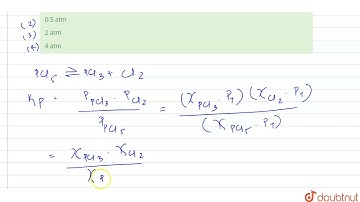 (2) 0.5 atm
(3) 2 atm
(4) 4 atm
PCl5 ⇌ PCl3 + Cl2
Kp = PPCl3 · PCl2 / PPCl5 = (XPCl3 · PT) (XCl2 · PT) / (XPCl5 · PT)
= XPCl3 · XCl2 / XP
doubtnut